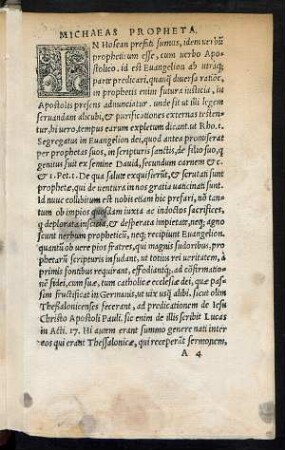 MICHAEAS PROPHETA.
IN Hosean prefati sumus, idem uerbū
propheticum esse, cum uerbo Apo-
stolico. id est Euangelion ab utraq;
parte predicari, quauis diuersa ratiōe,
in prophetis enim futura iusticia, in
Apostolis presens adnunciatur. unde fit ut illi legem
seruandam alicubi, & purificationes externas testen-
tur, hi uero, tempus earum expletum dicant. ut Rho. 1.
Segregatus in Euangelion dei, quod antea promiserat
per prophetas suos, in scripturis sanctis, de filio suo, q
genitus fuit ex semine Dauid, secundum carnem & c.
& 1. Pet. 1. De qua salute exquisierūt, & scrutati sunt
prophetæ, qui de uentura in nos gratia uaticinati sunt.
Id nunc collibitum est nobis etiam hic prefari, nō tan-
tum ob impios quosdam iuxta ac indoctos sacrifices,
q deplorata inscitia, & desperata impietate, neq; agno
scunt uerbum propheticū, neq; recipiunt Euangelion,
quantū ob uere pios fratres, qui magnis sudoribus, pro
phetarū scripturis insudant, ut totius rei ueritatem, à
primis fontibus requirant, effodiantq; ad cōfirmatio-
nem fidei, cum suæ, tum catholicæ ecclesiæ dei, quæ pas-
sim fructificat in Germanis, ut uix usq̃ alibi. sicut olim
Thessalonicenses fecerant, ad predicationem de Iesu
Christo Apostoli Pauli. sic enim de illis scribit Lucas
in Acti. 17. Hi autem erant summo genere nati inter
eos qui erant Thessalonicæ, qui receperūt sermonem,
A 4